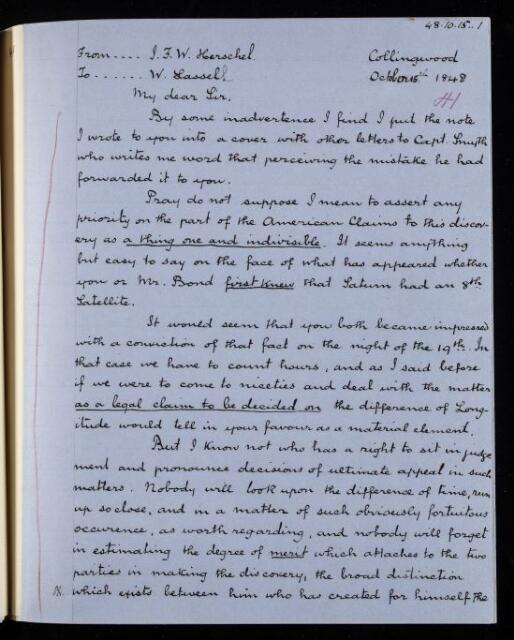 48.10.15..1
From.... J.F.W. Herschel. Collingwood
To...... W. Lassell. October 15th 1848
My dear Sir.
By some inadvertence I find I put the note
I wrote to you into a cover with other letters to Capt. Smyth
who writes me word that perceiving the mistake he had
forwarded it to you.
Pray do not suppose I mean to assert any
priority on the part of the American Claims to this discov-
ery as a thing one and indivisible. It seems anything
but easy to say on the face of what has appeared whether
you or Mr. Bond first knew that Saturn had an 8th
Satellite.
It would seem that you both became impressed
with a conviction of that fact on the night of the 19th. In
that case we have to count hours, and as I said before
if we were to come to niceties and deal with the matter
as a legal claim to be decided on the difference of Long-
itude would tell in your favour as a material element.
But I know not who has a right to sit in judge
ment and pronounce decisions of ultimate appeal in such
matters. Nobody will look upon the difference of time, run
up so close, and in a matter of such obviously fortuitous
occurence, as worth regarding, and nobody will forget
in estimating the degree of merit which attaches to the two
parties in making the discovery, the broad distinction
which exists between him who has created for himself the